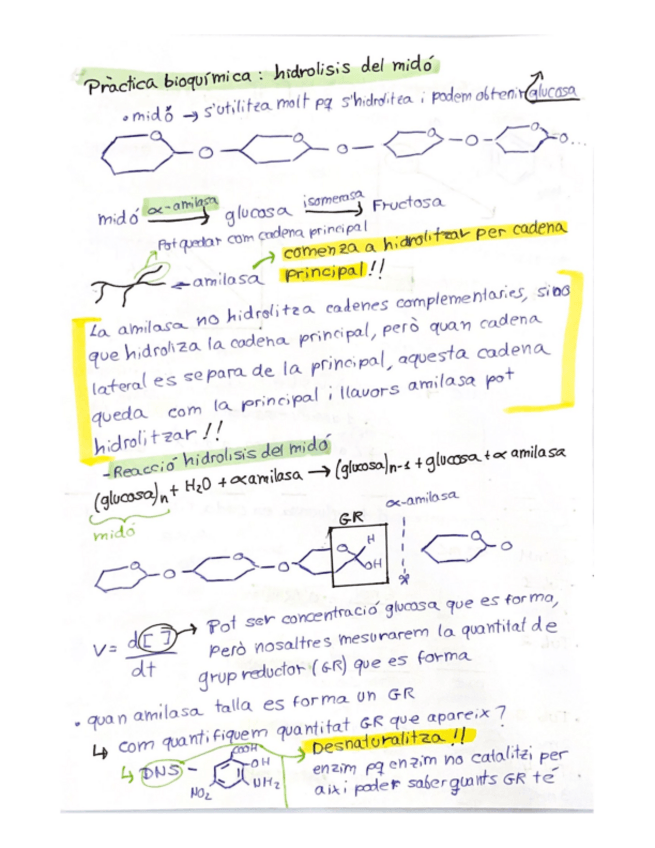 Pràctica bioquímica: hidrolisis del midó
• midó → s'utilitza molt pq s'hidrolitza i podem obtenir glucosa
O O O O O O O O...
midó α-amilasa glucosa isomerasa Fructosa
Pot quedar com cadena principal
← amilasa comença a hidrolitzar per cadena
principal!!
La amilasa no hidrolitza cadenes complementaries, sino
que hidroliza la cadena principal, però quan cadena
lateral es separa de la principal, aquesta cadena
queda com la principal i llavors amilasa pot
hidrolitzar!!
- Reacció hidrolisis del midó
(glucosa)n + H2O + α amilasa → (glucosa)n-1 + glucosa + α amilasa
midó
GR α-amilasa
O O O O O H OH O O
V = d[ ] / dt → Pot ser concentració glucosa que es forma,
però nosaltres mesurarem la quantitat de
grup reductor (GR) que es forma
• quan amilasa talla es forma un GR
↳ com quantifiquem quantitat GR que apareix?
↳ DNS - COOH OH NH2 NO2
Desnaturalitza!!
enzim pq enzim no catalitzi per
aixi poder saber quants GR té